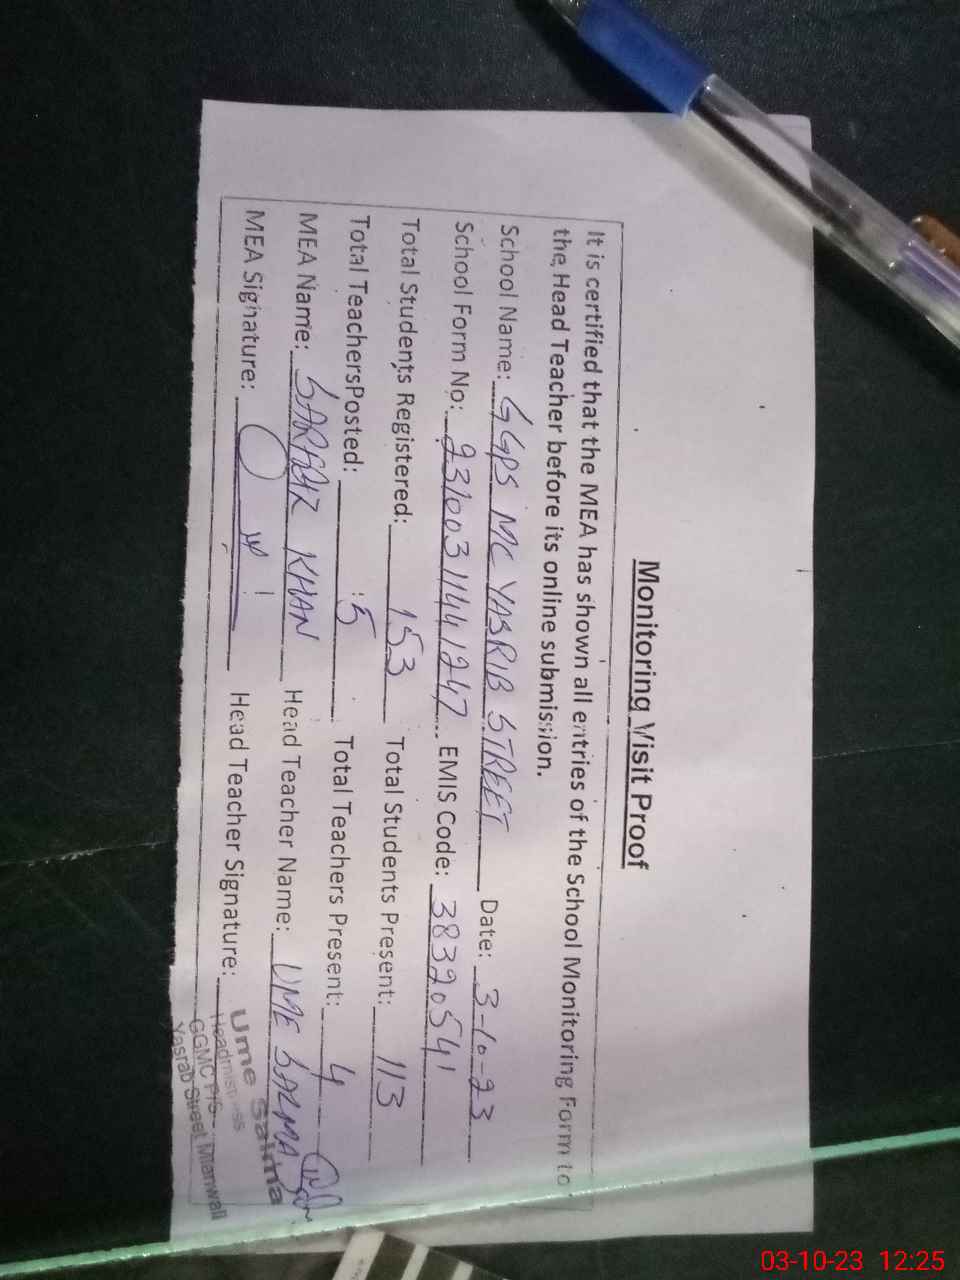 Monitoring Visit Proof
It is certified that the MEA has shown all entries of the School Monitoring Form to
the Head Teacher before its online submission.
School Name: GGPS MC YASRIB STREET Date: 3-10-23
School Form No: 23100311441247 EMIS Code: 38320541
Total Students Registered: 153 Total Students Present: 113
Total TeachersPosted: :5 Total Teachers Present: 4
MEA Name: SARFRAZ KHAN Head Teacher Name: UME SALMA
MEA Signature: Head Teacher Signature:
Ume Salma
Headmistress
GGMC P/S
Yasrab Street Mianwali
03-10-23 12:25